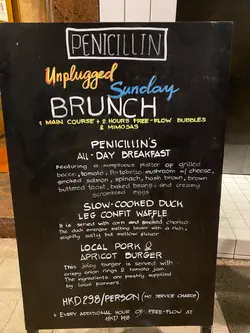 PENICILLIN
Unplugged
Sunday
BRUNCH
1 MAIN COURSE + 2 HOURS FREE-FLOW BUBBLES
& MIMOSAS
PENICILLIN'S
ALL-DAY BREAKFAST
Featuring a sumptuous platter of grilled
bacon, tomato, Portobello mushroom w/ cheese,
smoked salmon, spinach, hash brown, brown
buttered toast, baked beans, and creamy
scrambled eggs
SLOW-COOKED DUCK
LEG CONFIT WAFFLE
It is served with corn and smoked chorizo.
The duck emerges melting tender with a rich,
slightly salty but mellow flavor
LOCAL PORK &
APRICOT BURGER
This juicy burger is served with
crispy onion rings & tomato jam.
The ingredients are freshly supplied
by local farmers.
HKD298/PERSON (NO SERVICE CHARGE)
+ EVERY ADDITIONAL HOUR OF FREE-FLOW AT
HKD